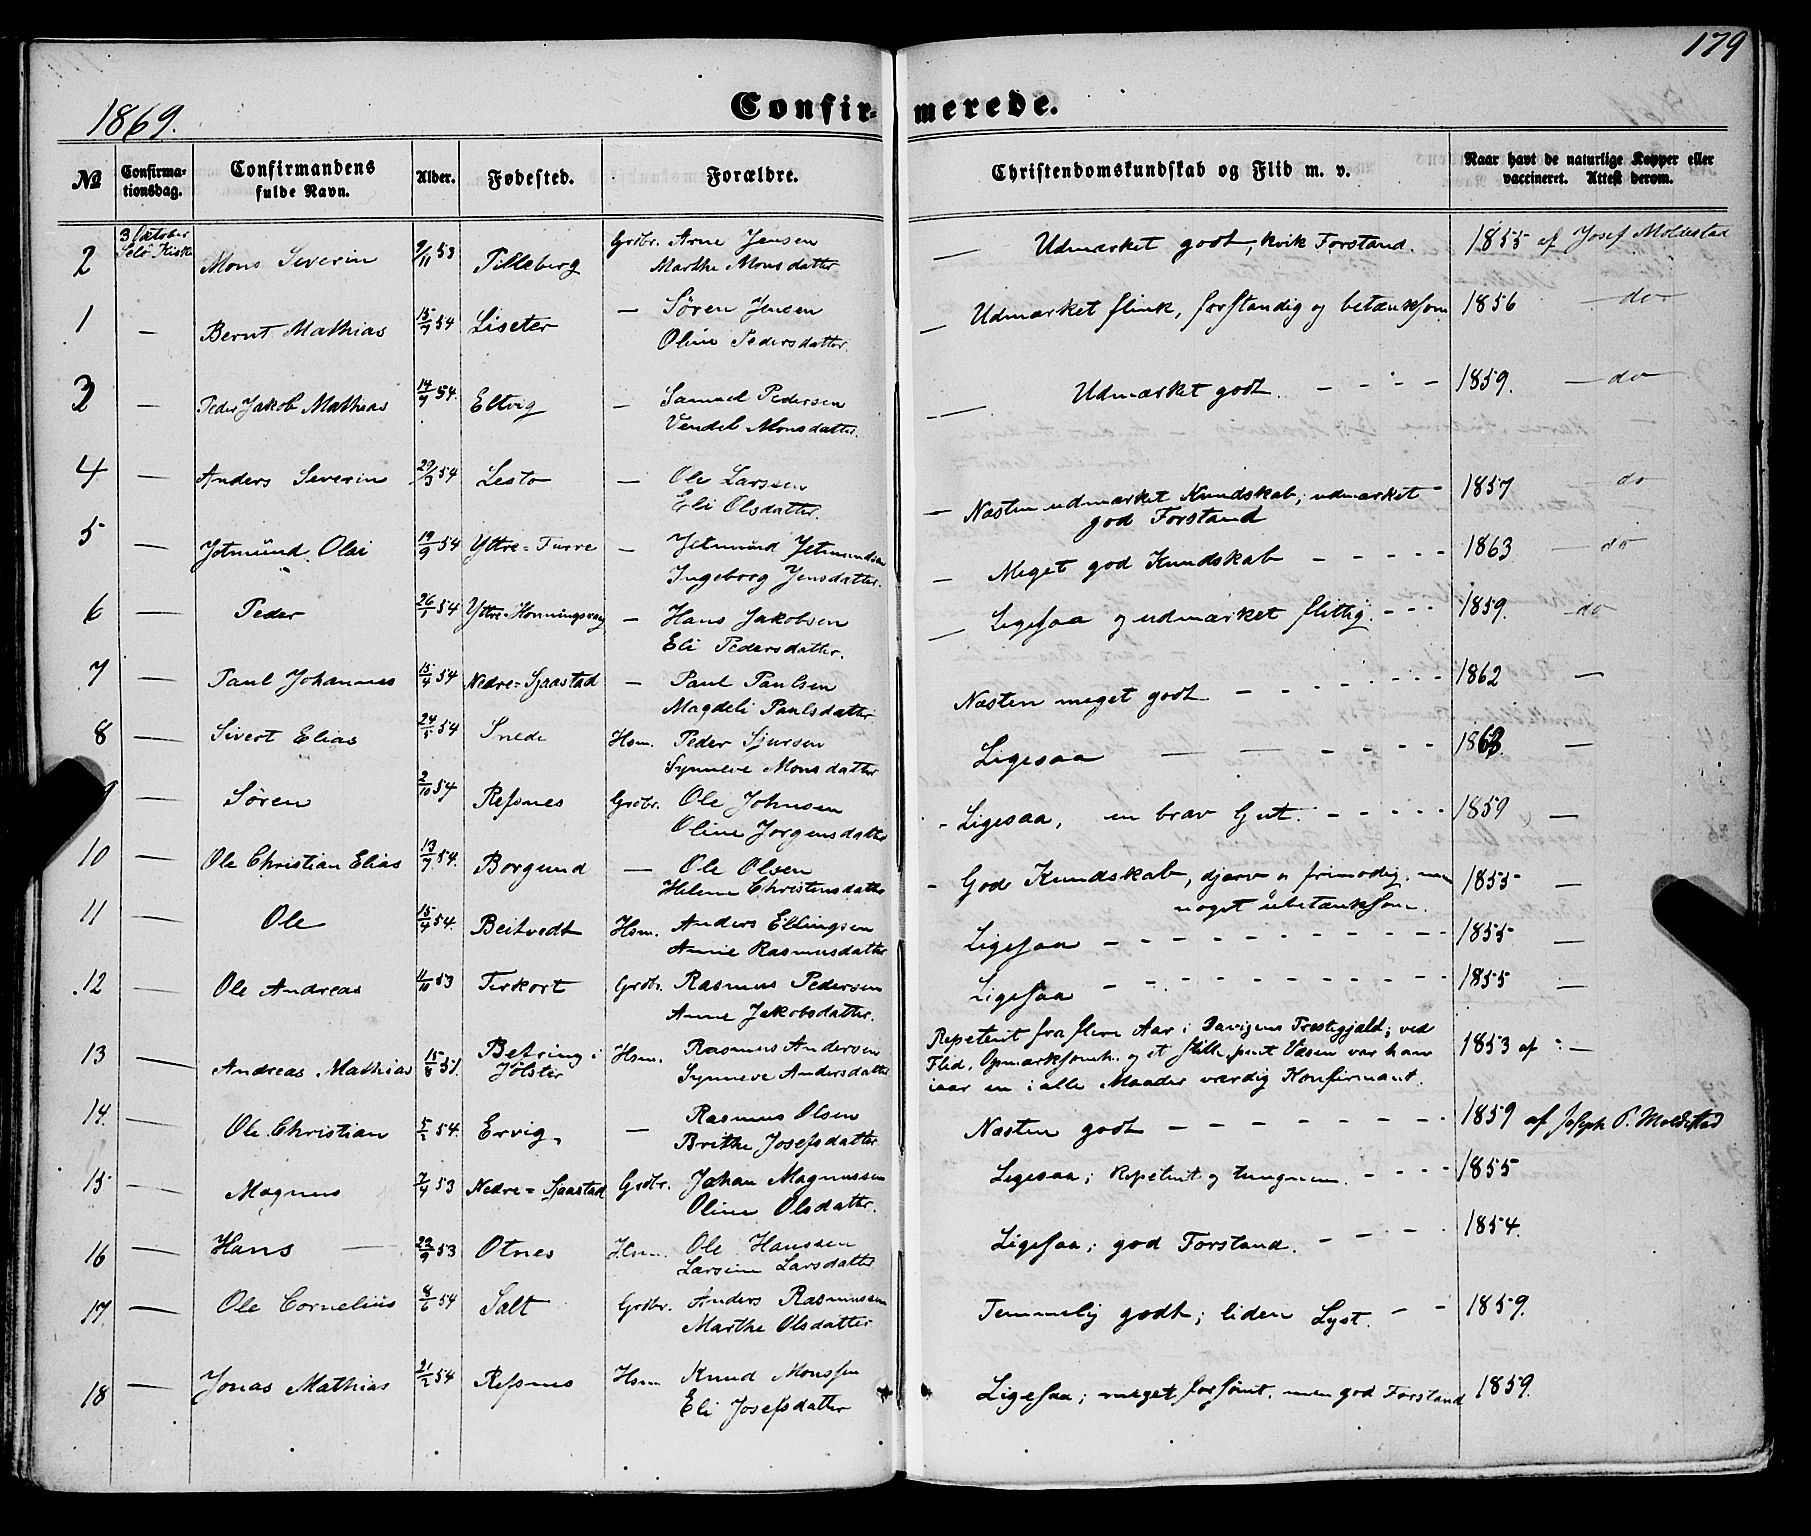 179
1869.
Confirmerede.
No
Confirmationsdag.
Confirmandens fulde Navn.
Alder.
Fødested.
Forældre.
Christendomskundskab og Flid m. v.
Naar havt de naturlige Kopper eller vaccineret. Attest derom.
2 3 Oktober Selø Kirke Mons Severin 9/11 53 Tilleberg Grdbr. Arne Jensen — Udmærket godt, kvik Forstand. 1855 af Josef Moldestad
Marthe Monsdatter
1 — Bernt Mathias 15/7 54 Liseter — Søren Jensen — Udmærket flink, forstandig og betænksom 1856 — do —
Oline Pedersdatter.
3 — Peder Jakob Mathias 14/9 54. Eltvig — Samuel Pedersen — Udmærket godt. - - - - 1859. — do —
Vendel Monsdatter.
4 — Anders Severin 29/3 54 Lesto — Ole Larssen — Næsten udmærket Kundskab; udmærket 1857 — do
Eli Olsdatter. god Forstand
5 — Jetmund Olai 19/9 54 Yttre=Furre — Jetmund Jetmundsen — Meget god Kundskab - - - - - 1863 — do
Ingeborg Jensdatter.
6 — Peder 26/1 54 Yttre-Honningsvaag — Hans Jakobsen — Ligesaa og udmærket flittig. - - - 1859. do
Eli Pedersdatter.
7 — Paul Johannes 15/4 54 Nedre=Sjaastad — Paul Paulsen Næsten meget godt - - - - - - - 1862 —
Magdeli Paulsdatter
8 — Sivert Elias 24/5 54 Snede Hsm. Peder Sjursen Ligesaa — — - - - - 1863. —
Synneve Monsdatter
9 — Søren 2/10 54 Refsnes Grdbr. Ole Johnsen - Ligesaa, en brav Gut. - - - - - 1859 —
Oline Jørgensdatter
10 — Ole Christian Elias 13/7 54. Borgund — Ole Olsen - Gode Kundskab, djærv og frimodig. men 1855 —
Helene Christensdatter noget ubetænksom.
11 — Ole 15/4 54. Beitvedt Hsm. Anders Ellingsen Ligesaa - - - - - - - - - - 1855 —
Anne Rasmusdatter
12 — Ole Andreas 11/10 53 Terkort Grdbr. Rasmus Pedersen Ligesaa - - - - - - - - - - 1855 —
Anne Jakobsdatter.
13 — Andreas Mathias 15/8 51. Befring i Jølster Hsm. Rasmus Andersen Repetent fra flere Aar i Davigens Præstegjæld; ved 1853 af —
Synneve Andersdatter Flid, Opmærksomh. og et stille, pent Væsen var han
iaar en i alle Maader værdig Konfirmant.
14. — Ole Christian 5/2 54. Ervig — Rasmus Olsen Næsten godt - - - - - - - - 1859 af Joseph P. Moldestad
Brithe Josefsdatter
15 — Magnus 7/4 53 Nedre=Sjaastad Grdbr. Johan Magnussen Ligesaa; Repetent og tungnem. - - - - 1855
Oline Olsdatter.
16 Hans — 22/9 53 Otnes Hsm. Ole Hanssen Ligesaa; god Forstand. - - - - 1854.
Larsine Larsdatter
17 — Ole Cornelius 8/6 54 Salt Grdbr. Anders Rasmussen Temmelig godt; liden Lyst. - - 1859.
Marthe Olsdatter
18 — Jonas Mathias 21/2 54 Refsnes Hsm Knud Monssen Ligesaa; meget forsømt, men god Forstand 1859.
Eli Josefsdatter